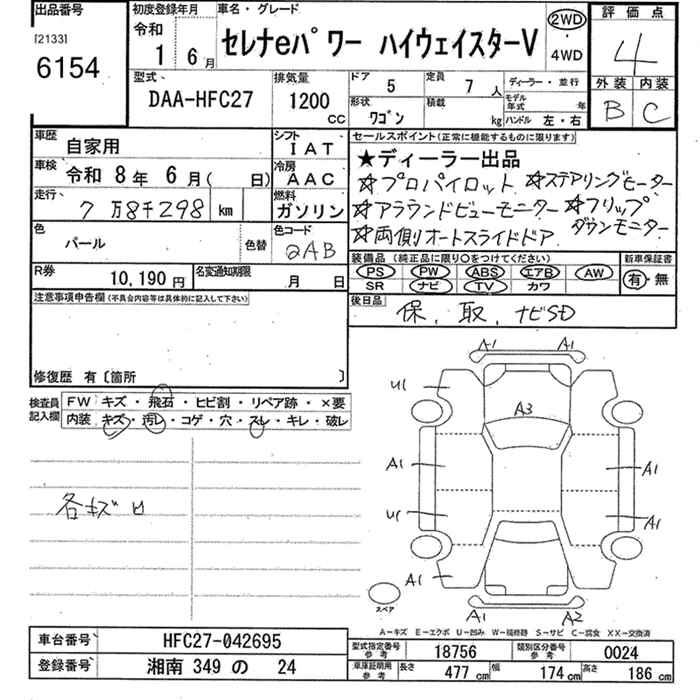 出品番号
[2133]
6154
初度登録年月
令和
1 6月
車名・グレード
セレナeパワー ハイウェイスターV
2WD
・
4WD
評価点
4
外装 内装
B C
型式
DAA-HFC27
排気量
1200
CC
ドア 5
定員 7人
形状
ワゴン
積載 kg
ディーラー・並行
モデル年式 年
ハンドル 左・右
車歴 自家用
シフト IAT
車検 令和 8年 6月( 日)
冷房 AAC
走行 7万8千298 km
燃料 ガソリン
色 パール 色替
色コード 2AB
R券 10,190円
名変通知期限 月 日
セールスポイント(正常に機能するものに限ります)
★ディーラー出品
☆プロパイロット ☆ステアリングヒーター
☆アラウンドビューモニター ☆フリップ
ダウンモニター
☆両側オートスライドドア
装備品(純正品に限り○をつけてください)
PS PW ABS エアB AW
SR ナビ TV カワ
新車保証書
有・無
後日品 保、取、ナビSD
注意事項申告欄(不具合内容等は具体的に記入して下さい)
修復歴 有〔箇所 〕
検査員
記入欄
FW キズ・飛石・ヒビ割・リペア跡・×要
内装 キズ・汚レ・コゲ・穴・スレ・キレ・破レ
各キズ凹
A1 A1
U1
A3
A1 A1
U1 A1
A1
A1 A2
スペア
A-キズ E-エクボ U-凹み W-補修跡 S-サビ C-腐食 XX-交換済
車台番号 HFC27-042695
登録番号 湘南 349 の 24
型式指定番号
参考
18756
類別区分番号
参考
0024
車庫証明用
参考
長さ 477cm 幅 174cm 高さ 186cm